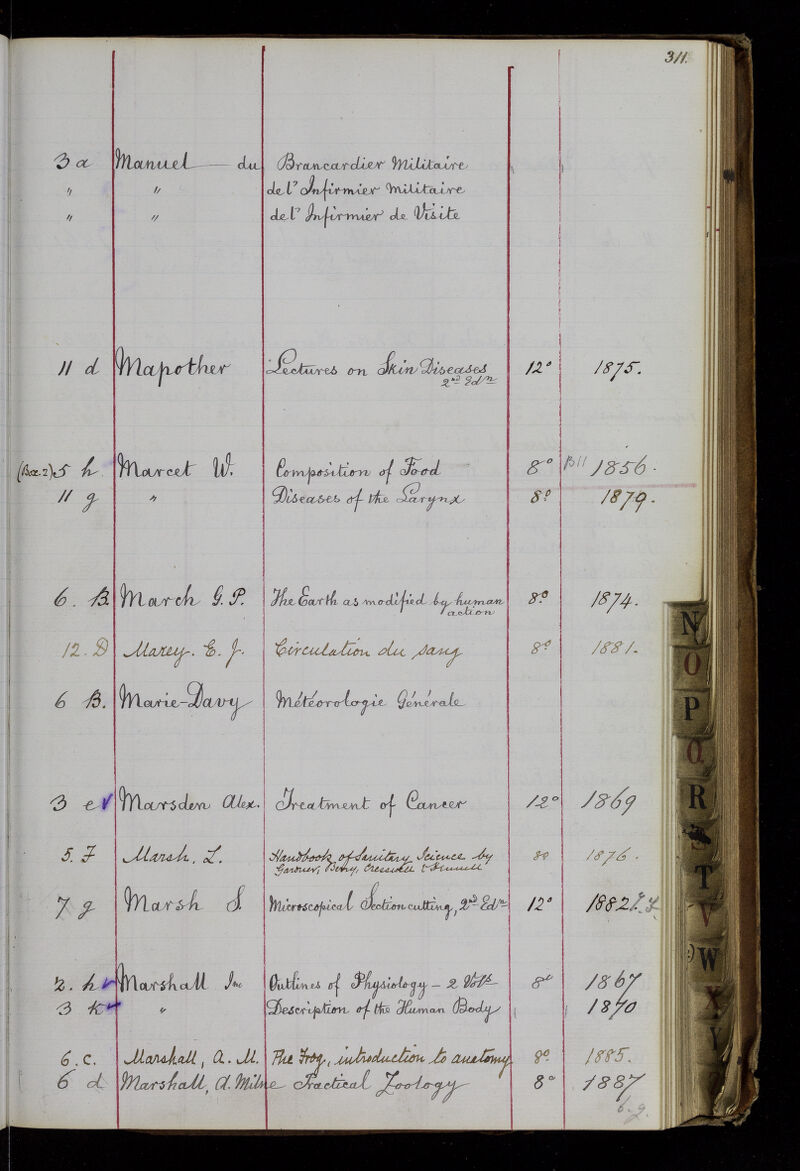 311.
3 a Manuel — du Brancardier Militaire
" " de l' Infirmier Militaire
" " de l' Infirmier de Visite
11 d Mapother Lectures on Skin Diseases 12° 1875.
2nd Edn
(Box 2) 5 h Marcet W. Composition of Food 8° B11 1856.
11 g " Diseases of the Larynx 8° 1879.
6. B. March G. P. The Earth as modified by human 8° 1874.
action
12. D Marey. E. J. Circulation du sang 8° 1881.
6 B. Marie-Davy Météorologie Générale
3 e Marsden Alex. Treatment of Cancer 12° 1869
5. F Marsh, L. Handbook of Sanitary Science by 8° 1876.
Gardner, Berry, Cresswell &
7 g Marsh S. Microscopical Section cutting, 2nd Edn 12° 1882
2. h Marshall Jno Outlines of Physiology — 2 Vols 8° 1867
3 k " Description of the Human Body 1870
6. c. Marshall, A. M. The Frog, introduction to anatomy 8° 1885.
6 d Marshall, A. Milne Practical Zoology 8° 1887
6. g.
N
O
P
Q
R
S
T
V
W
X
Y